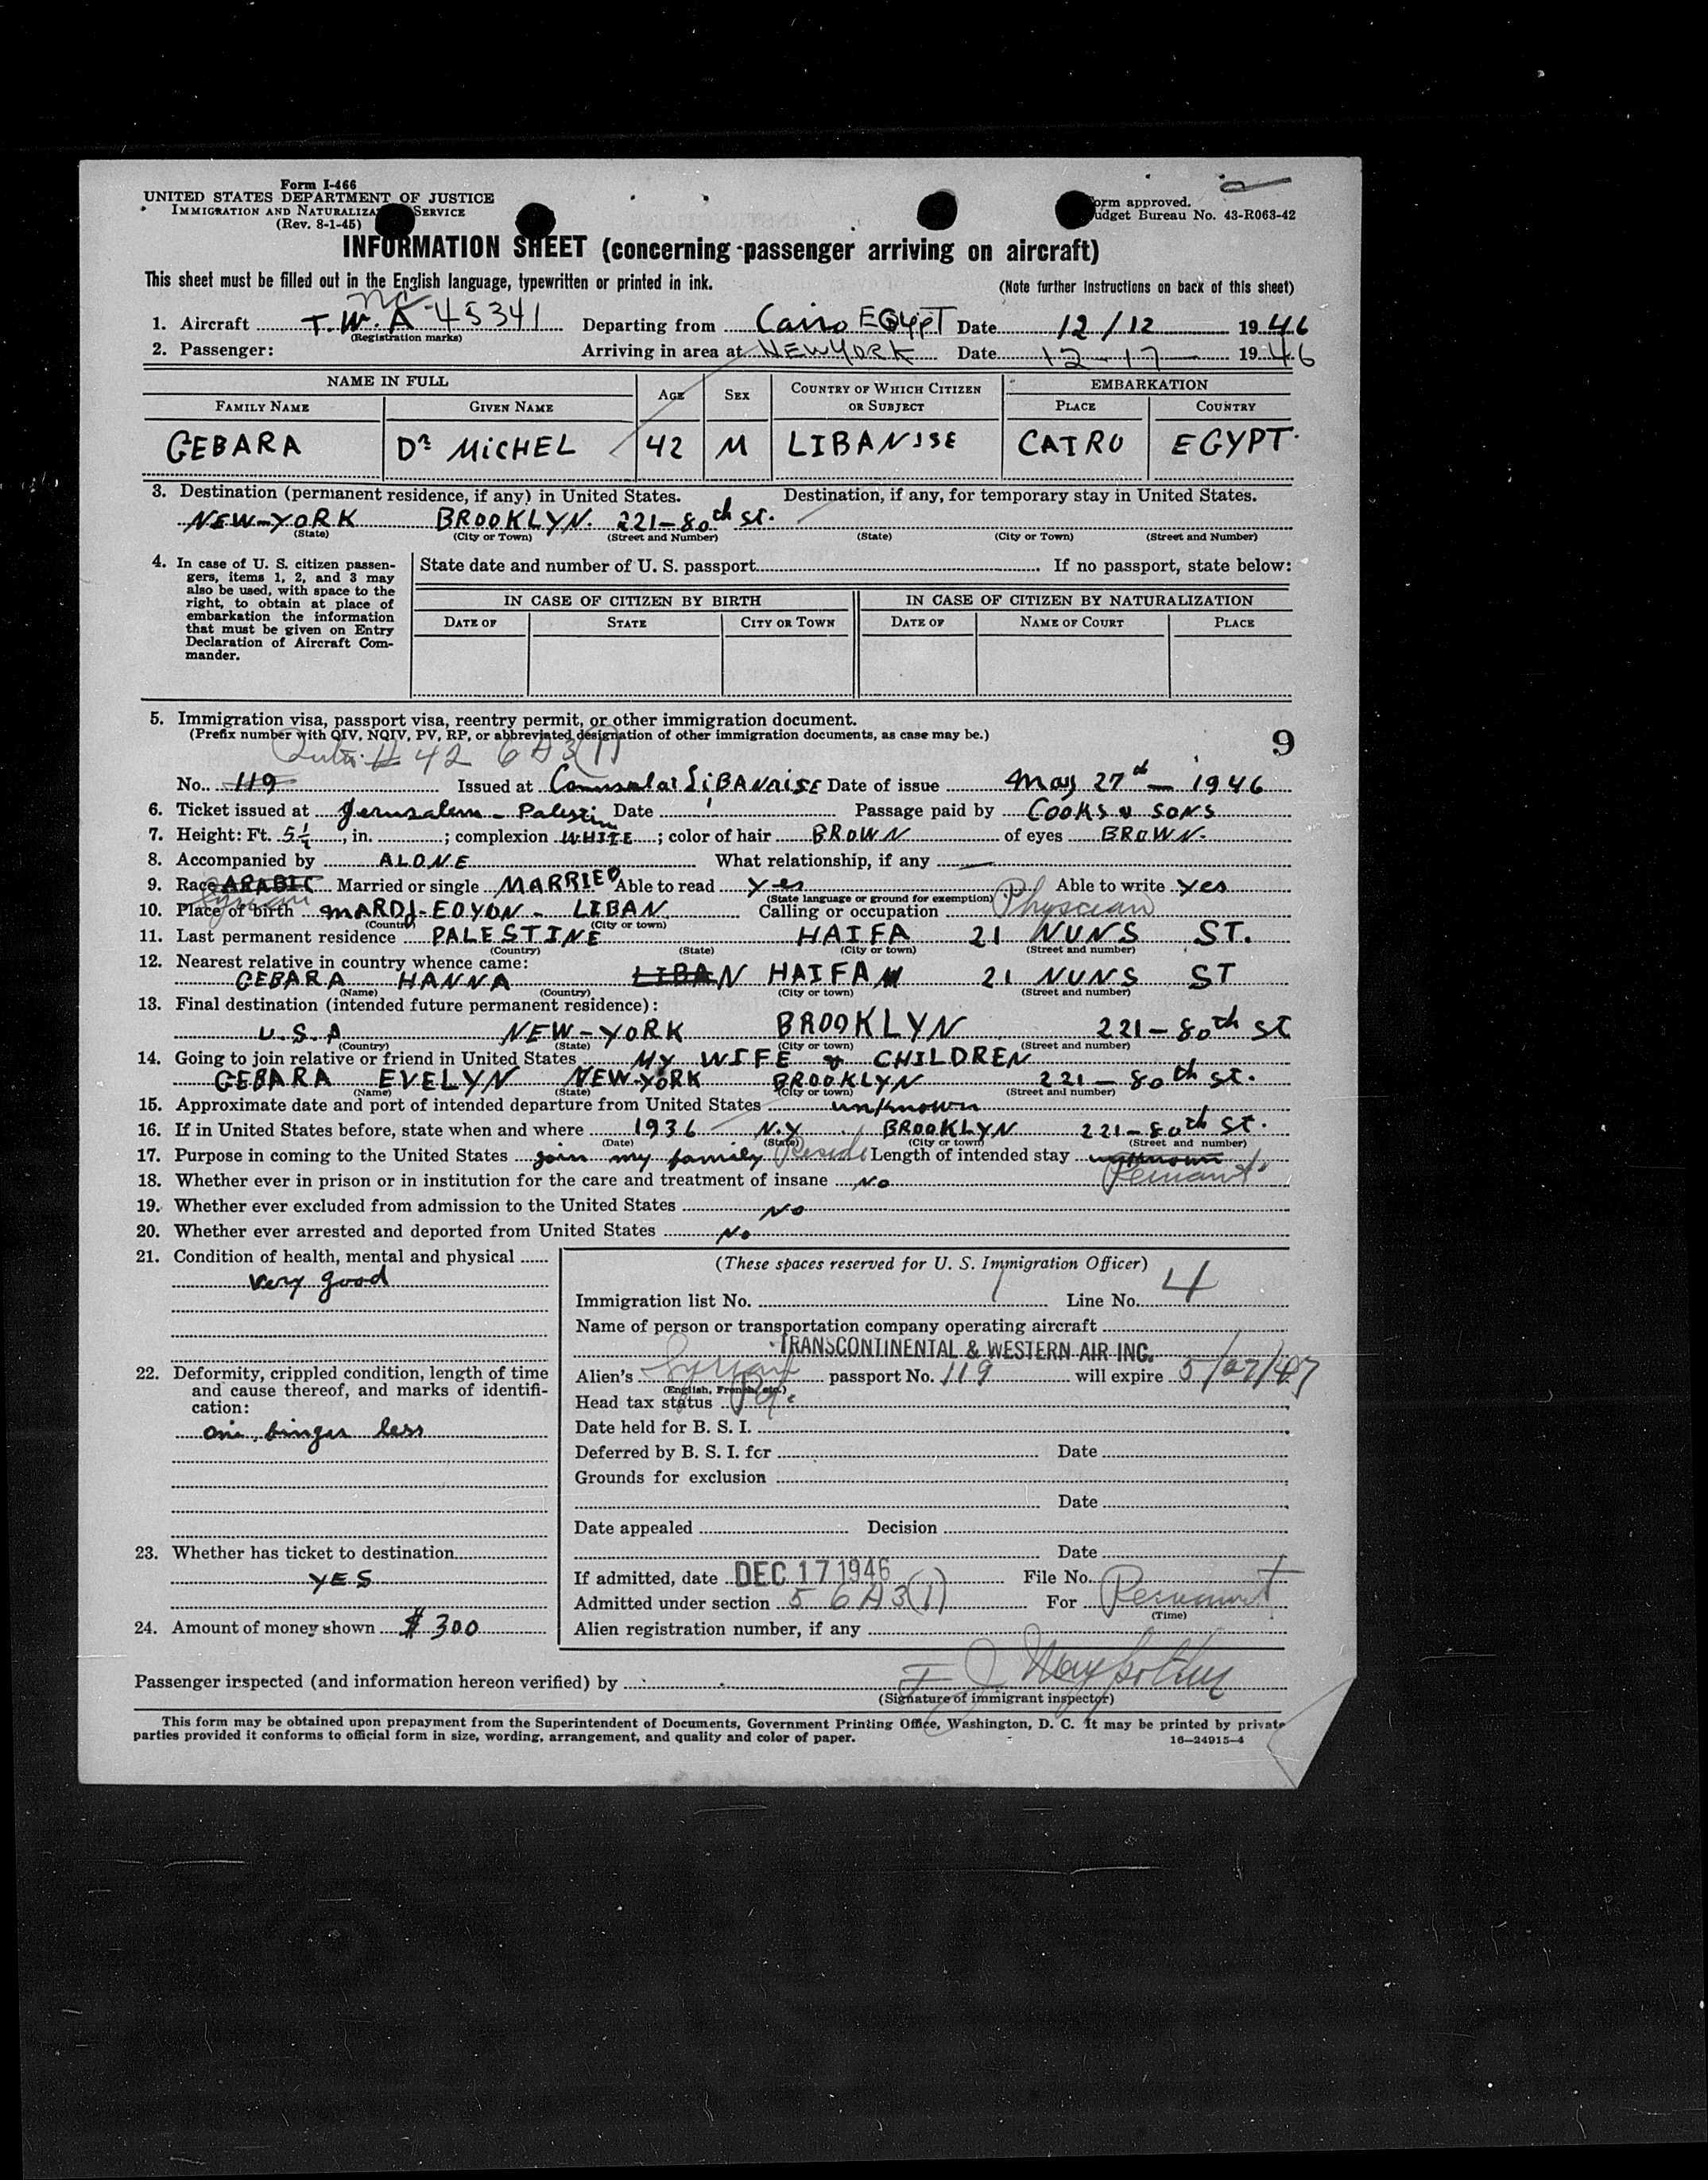 Form I-466
UNITED STATES DEPARTMENT OF JUSTICE
IMMIGRATION AND NATURALIZATION SERVICE
(Rev. 8-1-45)
Form approved.
Budget Bureau No. 43-R063-42
INFORMATION SHEET (concerning passenger arriving on aircraft)
This sheet must be filled out in the English language, typewritten or printed in ink. (Note further instructions on back of this sheet)
NC
1. Aircraft T.W.A-45341 Departing from Cairo EGypT Date 12/12 1946
(Registration marks)
2. Passenger: Arriving in area at NEWYORK Date 12-17- 1946
NAME IN FULL AGE SEX COUNTRY OF WHICH CITIZEN OR SUBJECT EMBARKATION
FAMILY NAME GIVEN NAME PLACE COUNTRY
GEBARA Dr MiCHEL 42 M LIBANISE CAIRO EGYPT.
3. Destination (permanent residence, if any) in United States. Destination, if any, for temporary stay in United States.
NEW-YORK BROOKLYN. 221-80th ST.
(State) (City or Town) (Street and Number) (State) (City or Town) (Street and Number)
4. In case of U. S. citizen passengers, items 1, 2, and 3 may also be used, with space to the right, to obtain at place of embarkation the information that must be given on Entry Declaration of Aircraft Commander.
State date and number of U. S. passport If no passport, state below:
IN CASE OF CITIZEN BY BIRTH IN CASE OF CITIZEN BY NATURALIZATION
DATE OF STATE CITY OR TOWN DATE OF NAME OF COURT PLACE
5. Immigration visa, passport visa, reentry permit, or other immigration document.
(Prefix number with QIV, NQIV, PV, RP, or abbreviated designation of other immigration documents, as case may be.)
9
# 42 6A3(1)
No. 119 Issued at LiBANaiSE Date of issue May 27th - 1946
6. Ticket issued at Jerusalem - Palestin Date Passage paid by COOKS & SONS
7. Height: Ft. 5½, in. ; complexion WHITE ; color of hair BROWN of eyes BROWN.
8. Accompanied by ALONE What relationship, if any —
9. Race ARABIC Married or single MARRIED Able to read yes Able to write yes
Syrian (State language or ground for exemption)
10. Place of birth MARDJ-EOYON - LIBAN Calling or occupation Physcian
(Country) (City or town)
11. Last permanent residence PALESTINE HAIFA 21 NUNS ST.
(Country) (State) (City or town) (Street and number)
12. Nearest relative in country whence came:
GEBARA HANNA LIBAN HAIFA 21 NUNS ST
(Name) (Country) (City or town) (Street and number)
13. Final destination (intended future permanent residence):
U.S.A NEW-YORK BROOKLYN 221-80th st
(Country) (State) (City or town) (Street and number)
14. Going to join relative or friend in United States MY WIFE & CHILDREN
GEBARA EVELYN NEW-YORK BROOKLYN 221-80th st.
(Name) (State) (City or town) (Street and number)
15. Approximate date and port of intended departure from United States unknown
16. If in United States before, state when and where 1936 N.Y BROOKLYN 221-80th st.
(Date) (State) (City or town) (Street and number)
17. Purpose in coming to the United States join my family Reside Length of intended stay unknown
Permant
18. Whether ever in prison or in institution for the care and treatment of insane No
19. Whether ever excluded from admission to the United States No
20. Whether ever arrested and deported from United States No
21. Condition of health, mental and physical
very good
22. Deformity, crippled condition, length of time and cause thereof, and marks of identification:
one finger less
23. Whether has ticket to destination
YES
24. Amount of money shown $ 300
(These spaces reserved for U. S. Immigration Officer)
Immigration list No. 1 Line No. 4
Name of person or transportation company operating aircraft
TRANSCONTINENTAL & WESTERN AIR INC.
Alien's Syrian passport No. 119 will expire 5/27/47
(English, French, etc.)
Head tax status
Date held for B. S. I.
Deferred by B. S. I. for Date
Grounds for exclusion
Date
Date appealed Decision
Date
If admitted, date DEC 17 1946 File No.
Admitted under section 5 6A3(1) For Permanent
(Time)
Alien registration number, if any
Passenger inspected (and information hereon verified) by
(Signature of immigrant inspector)
This form may be obtained upon prepayment from the Superintendent of Documents, Government Printing Office, Washington, D. C. It may be printed by private
parties provided it conforms to official form in size, wording, arrangement, and quality and color of paper. 16—24915-4